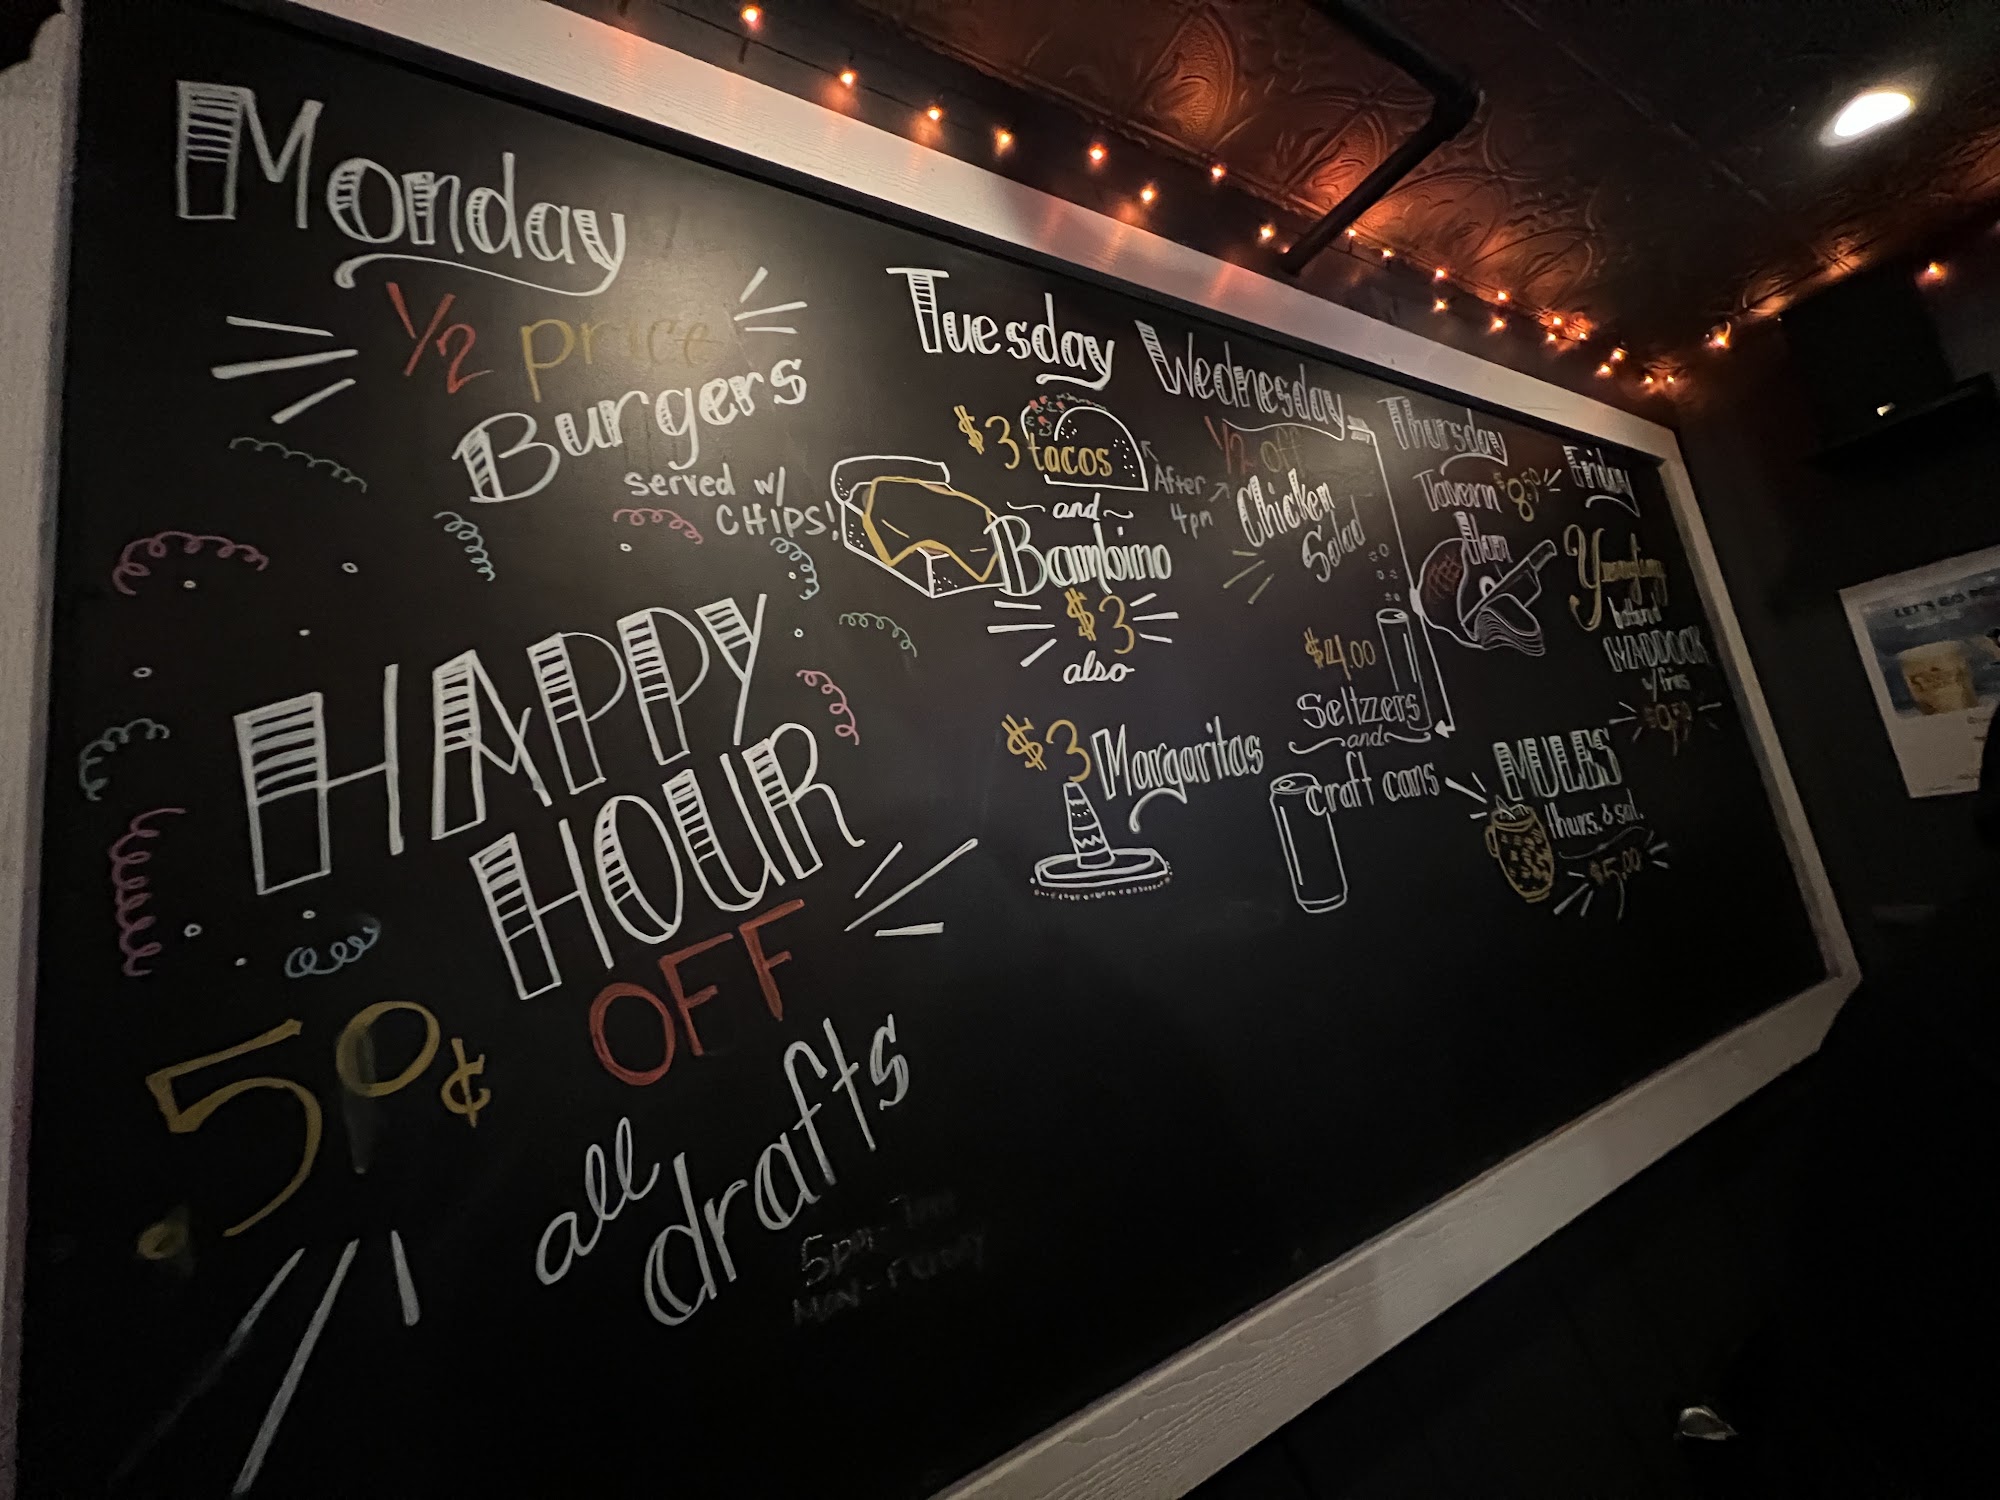 Monday
1/2 price
Burgers
served w/
CHIPS!
HAPPY
HOUR
.50¢ OFF
all
drafts
5pm-7pm
MON-FRIDAY
Tuesday
$3 tacos
and
Bambino
$3
also
$3 Margaritas
After
4pm
Wednesday
1/2 off
Chicken
Salad
$4.00
Seltzzers
and
craft cans
Thursday
Tavern $8.50
Ham
MULES
thurs. & sat.
$5.00
Friday
Yuengling
battered
HADDOCK
w/ fries
LET'S GO